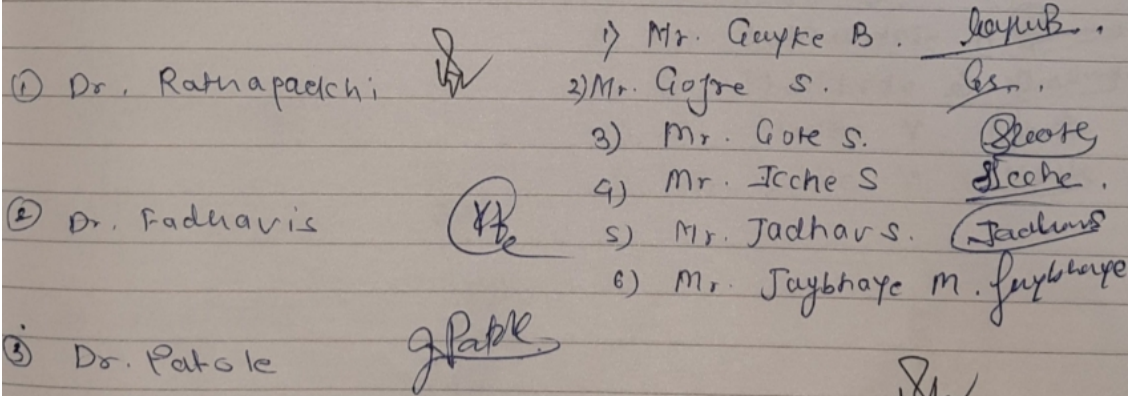 ① Dr. Rathapadchi
② Dr. Fadhavis
③ Dr. Patole gPatole.
1) Mr. Gayke B.
2) Mr. Gofre S. Gs.
3) Mr. Gote S. SGote
4) Mr. Icche S SIcche.
5) Mr. Jadhav S. JadhavS
6) Mr. Jaybhaye M. Jaybhaye